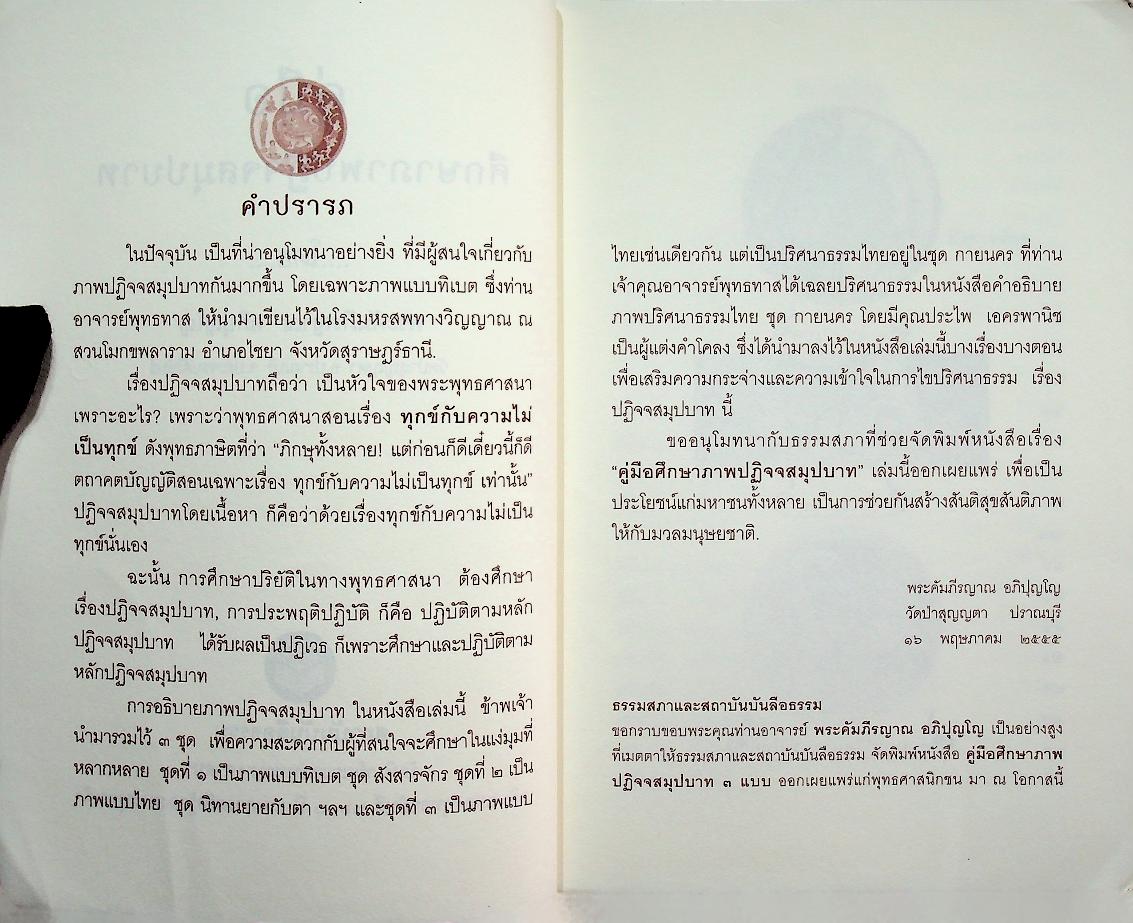 คำปรารภ
ในปัจจุบัน เป็นที่น่าอนุโมทนาอย่างยิ่ง ที่มีผู้สนใจเกี่ยวกับ
ภาพปฏิจจสมุปบาทกันมากขึ้น โดยเฉพาะภาพแบบทิเบต ซึ่งท่าน
อาจารย์พุทธทาส ให้นำมาเขียนไว้ในโรงมหรสพทางวิญญาณ ณ
สวนโมกขพลาราม อำเภอไชยา จังหวัดสุราษฎร์ธานี.
เรื่องปฏิจจสมุปบาทถือว่า เป็นหัวใจของพระพุทธศาสนา
เพราะอะไร? เพราะว่าพุทธศาสนาสอนเรื่อง ทุกข์กับความไม่
เป็นทุกข์ ดังพุทธภาษิตที่ว่า “ภิกษุทั้งหลาย! แต่ก่อนก็ดีเดี๋ยวนี้ก็ดี
ตถาคตบัญญัติสอนเฉพาะเรื่อง ทุกข์กับความไม่เป็นทุกข์ เท่านั้น”
ปฏิจจสมุปบาทโดยเนื้อหา ก็คือว่าด้วยเรื่องทุกข์กับความไม่เป็น
ทุกข์นั่นเอง
ฉะนั้น การศึกษาปริยัติในทางพุทธศาสนา ต้องศึกษา
เรื่องปฏิจจสมุปบาท, การประพฤติปฏิบัติ ก็คือ ปฏิบัติตามหลัก
ปฏิจจสมุปบาท ได้รับผลเป็นปฏิเวธ ก็เพราะศึกษาและปฏิบัติตาม
หลักปฏิจจสมุปบาท
การอธิบายภาพปฏิจจสมุปบาท ในหนังสือเล่มนี้ ข้าพเจ้า
นำมารวมไว้ ๓ ชุด เพื่อความสะดวกกับผู้ที่สนใจจะศึกษาในแง่มุมที่
หลากหลาย ชุดที่ ๑ เป็นภาพแบบทิเบต ชุด สังสารจักร ชุดที่ ๒ เป็น
ภาพแบบไทย ชุด นิทานยายกับตา ฯลฯ และชุดที่ ๓ เป็นภาพแบบ
ไทยเช่นเดียวกัน แต่เป็นปริศนาธรรมไทยอยู่ในชุด กายนคร ที่ท่าน
เจ้าคุณอาจารย์พุทธทาสได้เฉลยปริศนาธรรมในหนังสือคำอธิบาย
ภาพปริศนาธรรมไทย ชุด กายนคร โดยมีคุณประไพ เอครพานิช
เป็นผู้แต่งคำโคลง ซึ่งได้นำมาลงไว้ในหนังสือเล่มนี้บางเรื่องบางตอน
เพื่อเสริมความกระจ่างและความเข้าใจในการไขปริศนาธรรม เรื่อง
ปฏิจจสมุปบาท นี้
ขออนุโมทนากับธรรมสภาที่ช่วยจัดพิมพ์หนังสือเรื่อง
“คู่มือศึกษาภาพปฏิจจสมุปบาท” เล่มนี้ออกเผยแพร่ เพื่อเป็น
ประโยชน์แก่มหาชนทั้งหลาย เป็นการช่วยกันสร้างสันติสุขสันติภาพ
ให้กับมวลมนุษยชาติ.
พระคัมภีรญาณ อภิปุญโญ
วัดป่าสุญญตา ปราณบุรี
๑๖ พฤษภาคม ๒๕๕๕
ธรรมสภาและสถาบันบันลือธรรม
ขอกราบขอบพระคุณท่านอาจารย์ พระคัมภีรญาณ อภิปุญโญ เป็นอย่างสูง
ที่เมตตาให้ธรรมสภาและสถาบันบันลือธรรม จัดพิมพ์หนังสือ คู่มือศึกษาภาพ
ปฏิจจสมุปบาท ๓ แบบ ออกเผยแพร่แก่พุทธศาสนิกชน มา ณ โอกาสนี้